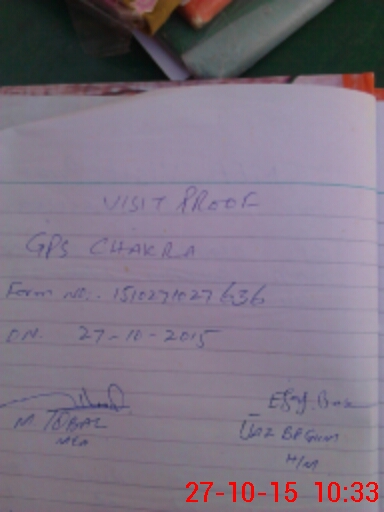 VISIT PROOF
GPS CHAKRA
Form NO:- 1510271027636
ON. 27-10-2015
M. IQBAL
MEA
BEGUM
H/M
27-10-15 10:33